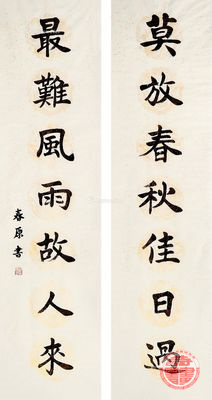 莫放春秋佳日過
最難風雨故人來
春原書